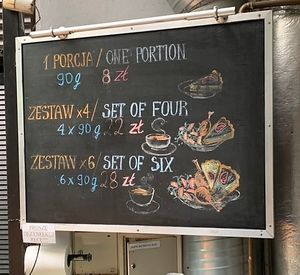 1 PORCJA / ONE PORTION
90g 8 zł
ZESTAW x4 / SET OF FOUR
4 x 90g 22 zł
ZESTAW x6 / SET OF SIX
6 x 90g 28 zł